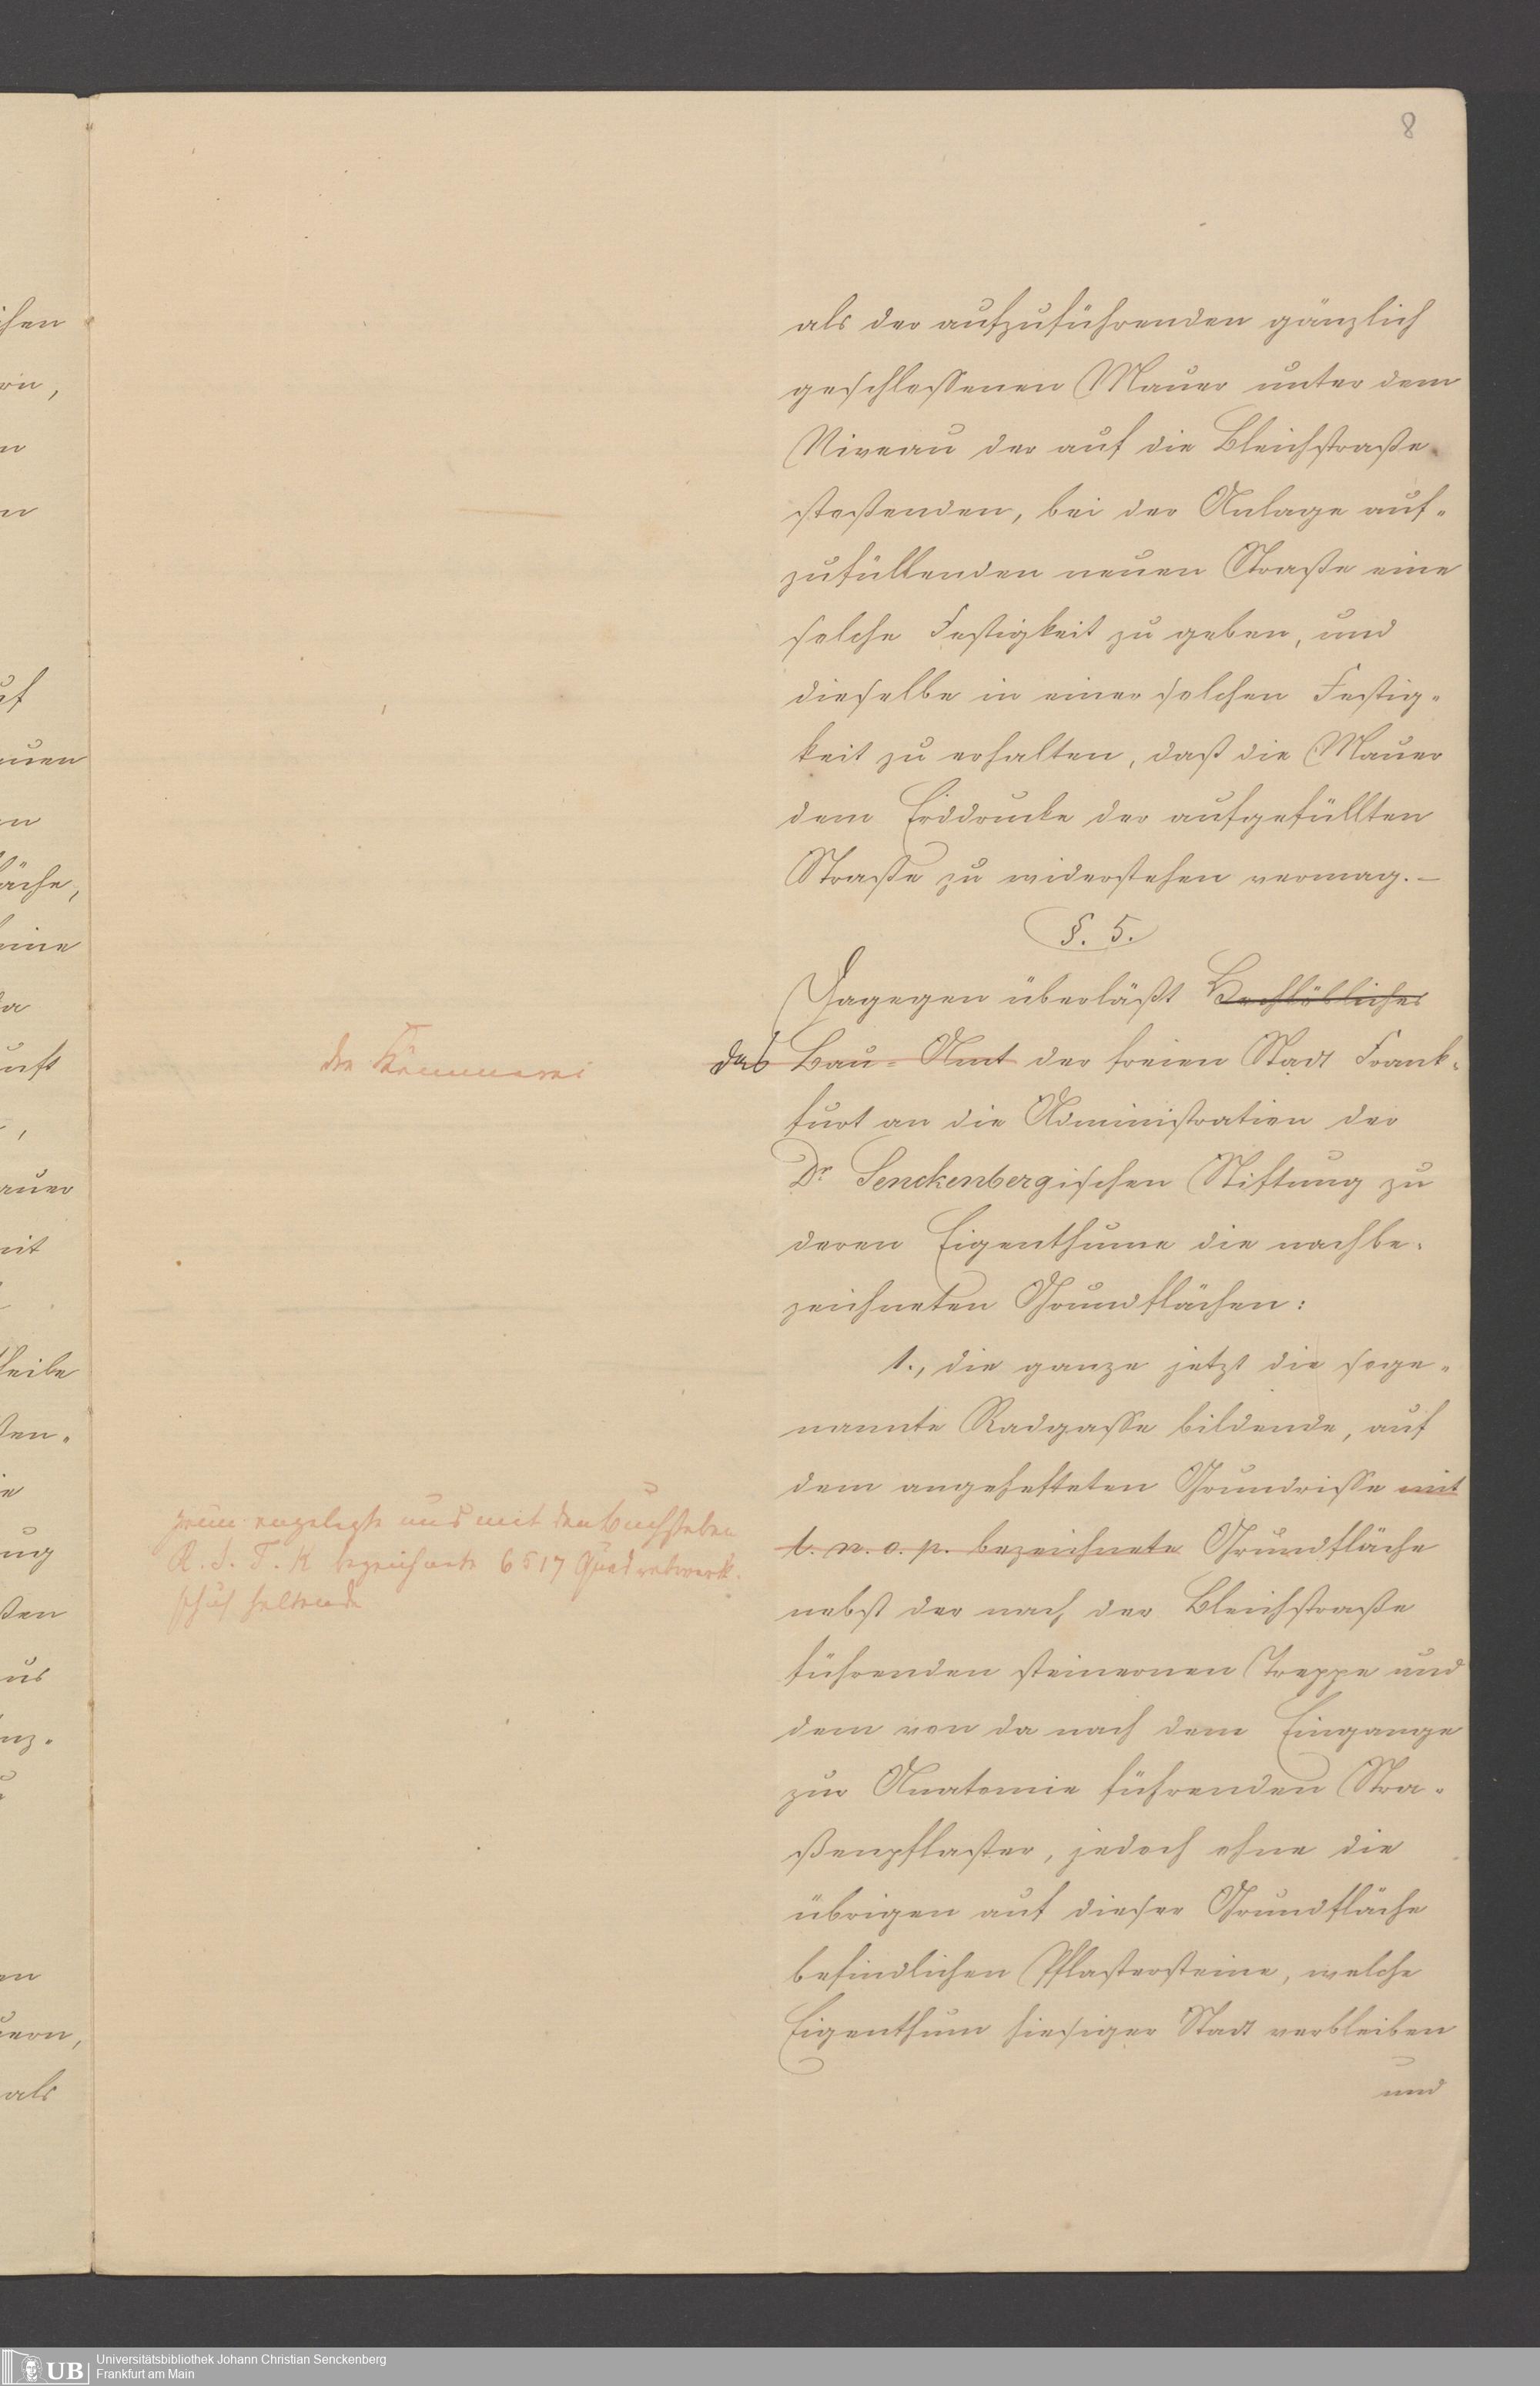 8
als der aufzuführenden gänzlich
geschlossenen Mauer unter dem
Niveau der auf die Bleichstraße
stoßenden, bei der Anlage auf-
zufüllenden neuen Straße eine
solche Festigkeit zu geben, und
dieselbe in einer solchen Festig-
keit zu erhalten, daß die Mauer
dem Erddrucke der aufgefüllten
Straße zu widerstehen vermag.—
§. 5.
Dagegen überläßt Hochlöbliches
das Bau-Amt der freien Stadt Frank-
furt an die Administration der
Dr Senckenbergischen Stiftung zu
deren Eigenthume die nachbe-
zeichneten Grundflächen:
1., die ganze jetzt die soge-
nannte Radgasse bildende, auf
dem angehefteten Grundrisse mit
l. n. o. p. bezeichnete Grundfläche
nebst der nach der Bleichstraße
führenden steinernen Treppe und
dem von da nach dem Eingange
zur Anatomie führenden Stra-
ßenpflaster, jedoch ohne die
übrigen auf dieser Grundfläche
befindlichen Pflastersteine, welche
Eigenthum hiesiger Stadt verbleiben
und
die Kämmerei
grün angelegte und mit den Buchstaben
bezeichnete 6517 Quadratwerk-
schuh haltende
ishen
ern,
n
en
uf
auen
en
läche,
keine
da
unft
auer
mit
heile
ßen-
ie
ung
ßen
aus
nz-
en
uern,
als
UB
Universitätsbibliothek Johann Christian Senckenberg
Frankfurt am Main